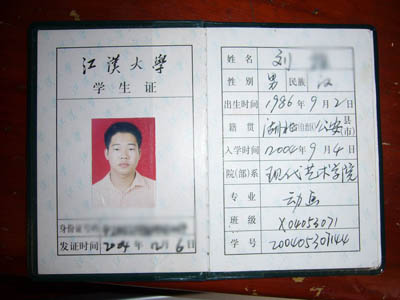 江汉大学
学生证
身份证号码
发证时间 2004年12月6日
姓名 刘
性别 男 民族 汉
出生时间 1986年9月2日
籍贯 湖北省(自治区)公安县(市)
入学时间 2004年9月4日
院(部)系 现代艺术学院
专业 动画
班级 X04053071
学号 200405307144